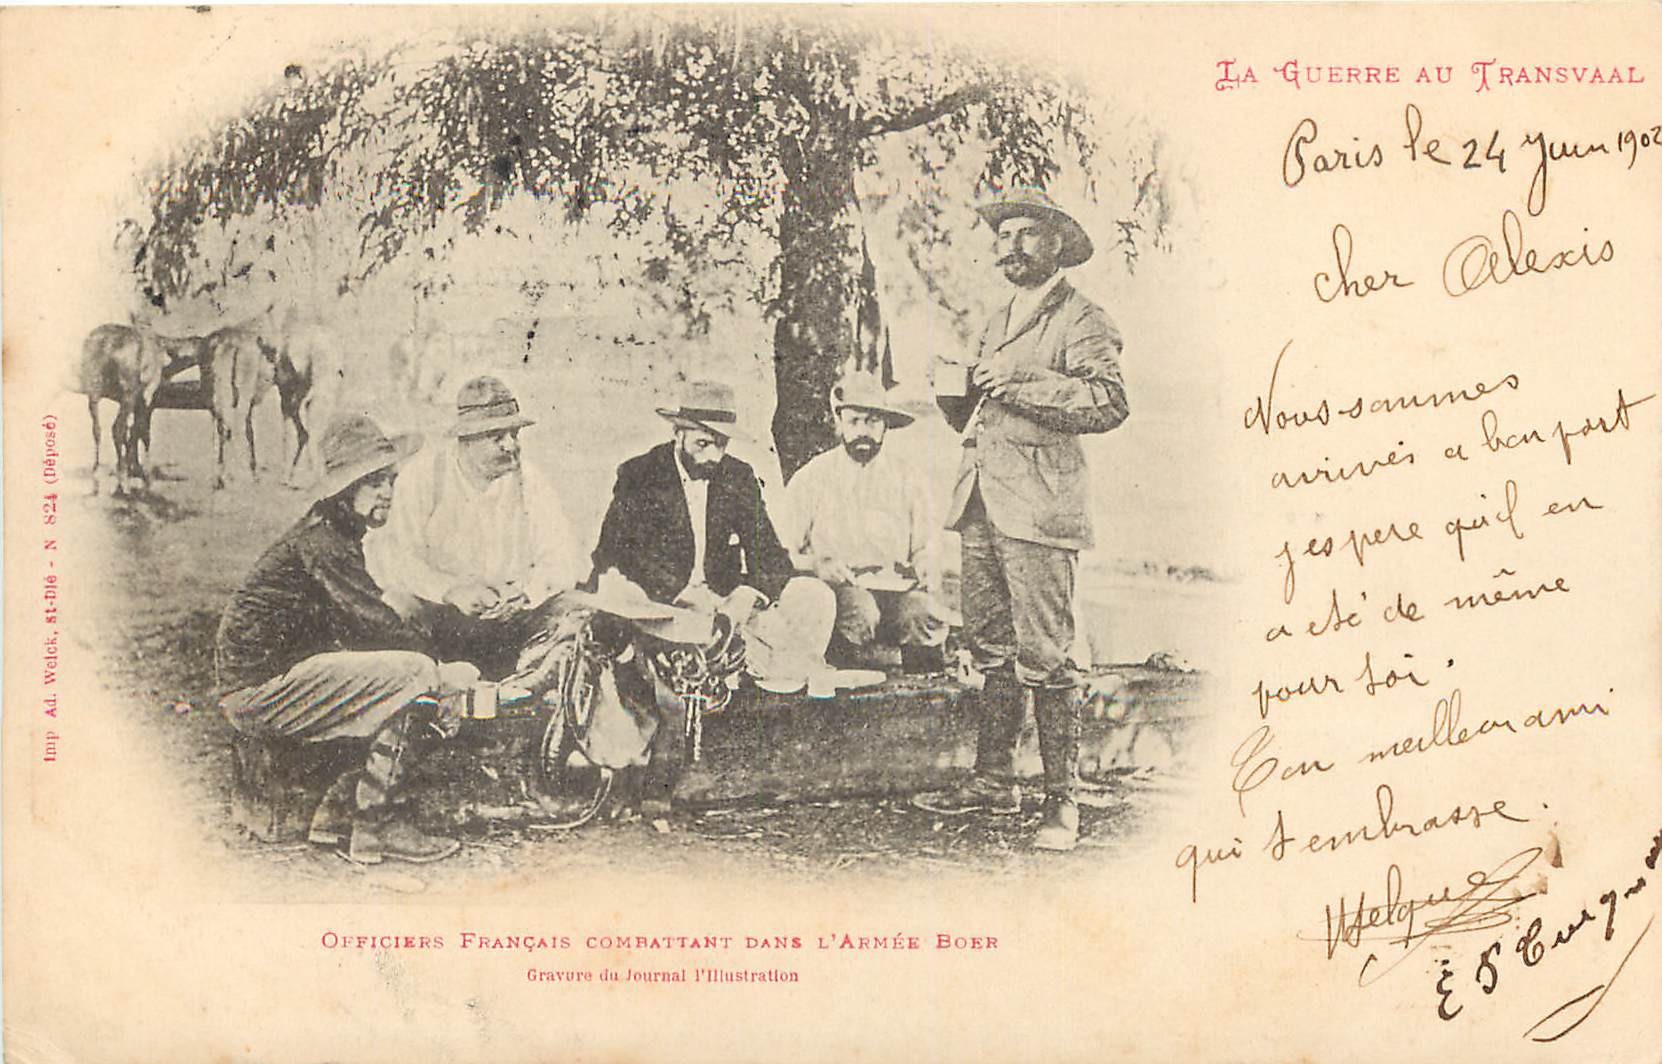 LA GUERRE AU TRANSVAAL
Paris le 24 Juin 1902
cher Alexis
Nous sommes
arrivés a bon port
jespere qu'il en
a eté de même
pour toi.
Ton meilleur ami
qui t'embrasse.
OFFICIERS FRANÇAIS COMBATTANT DANS L'ARMÉE BOER
Gravure du Journal l'Illustration
Imp Ad. Weick, St-Dié - N 824 (Déposé)